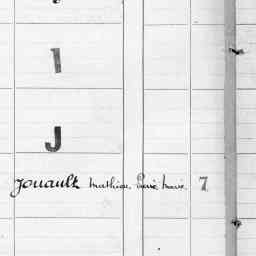 I
J
Jouault Mathieu René Marie 7